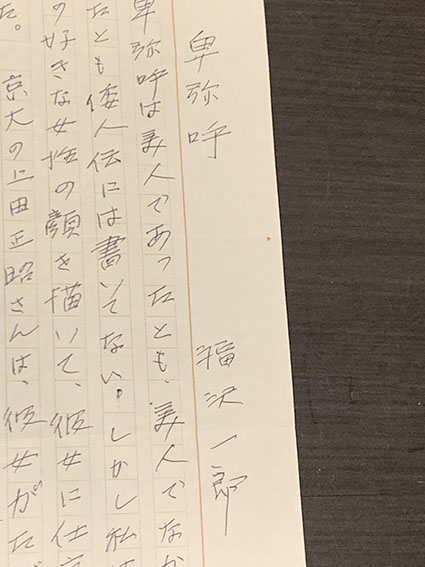 卑弥呼 福沢一郎
卑弥呼は美人であったとも、美人でなか
たとも倭人伝には書いてない。しかし私は
の好きな女性の顔を描いて、彼女に仕立
た。京大の上田正昭さんは、彼女がた